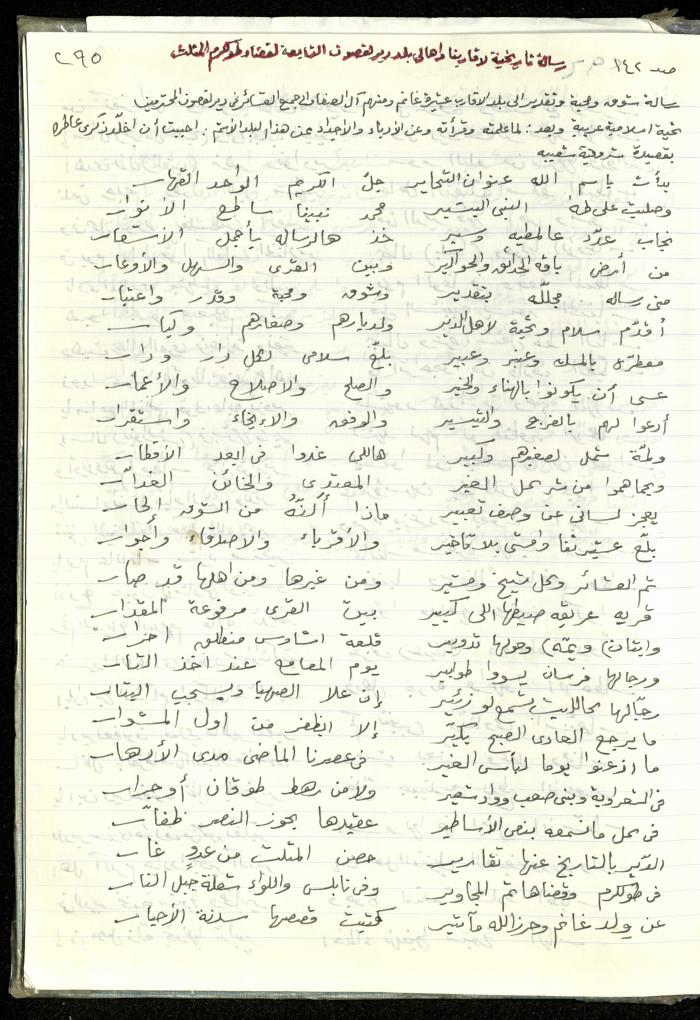 صد ١٤٢ ٢٩٥
رسالة تاريخية لاقاربنا واهالي بلد دير الغصون التابعة لقضاء طولكرم المثلث
رسالة شوق ومحبة وتقدير الى بلد الاقارب عشيرة غانم ومنهم آل الصفا والى جميع العشائر في دير الغصون المحترمين
تحية اسلامية عربية وبعد: لما علمته وقرأته وعن الأدباء والأجداد عن هذا البلد الأشم. احببت أن اخلّد ذكرى عاطره
بقصيدة شروقية شعبيه
بدأت باسم الله عنوان التحارير جلّ الكريم الواحد القهار
وصليت على طه النبي البشير محمد نبينا ساطع الأنوار
يجاب عدّد عالمطيه وسير خذ هالرساله بأجمل الأشعار
من أرض باقه الحدائق والحواكير وبين القرى والسهل والأوعار
مني رساله مجللّه بتقدير وشوق ومحبة وقدر واعتبار
أقدّم سلام وتحية لأهل الدير ولديارهم وصغارهم وكبار
معطرّه بالمسك وعنبر وعبير بلّغ سلامي لكل دار ودار
عسى أن يكونوا بالهناء والخير والصلح والاصلاح والأعمار
أدعوا لهم بالفرج والتيسير والوفق والإخاء واستقرار
ولمّة شمل لصغيرهم وكبير هاللي غدوا في ابعد الأقطار
ويحماهموا من شر كل الغير المعتدي والخائن الغدّار
يعجز لساني عن وصف تعبير ماذا أكنّه من الشوق الحار
بلّغ عشيرتنا وامشي بلا تأخير والأقرباء والاصدقاء والجوار
ثم العشائر وكل شيخ ومشير ومن غيرها ومن اهلها قد صار
قريه عريقه صيطها الى كبير بين القرى مرفوعة المقدار
وحولها تدوير قلعة اشاوس منطلق احرار
ورجالها فرسان يسووا طوابير يوم المعامع عند اخذ الثار
رجّالها كالليث تسمع لو زئير إن علا الصهيا ويحيي التيار
ما يرجع العادي الصبح بكيّر إلا الظفر من اول المشوار
ما اذعنوا يوما لبأس الغير في عصرنا الماضي مدى الأدهار
في الشعراوية وبني صعب وواد شعير ولا من رهط طوقان أو جرار
في كل ما نسمعه بنص الأساطير عقيدها يحوز النصر ظفّار
الدير بالتاريخ عنها تقارير حصن المثلث من عدوٍ غار
في طولكرم وقضاها ثم المجاوير وفي نابلس واللواء شعلة جبل النار
عن ولد غانم وحرز الله مآثير كتبت قصصها سدنة الأحبار